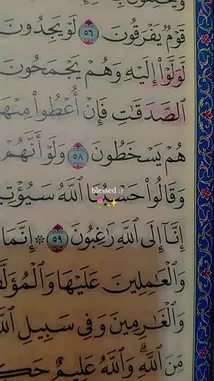 قَوْمٌ يَفْرَقُونَ ٥٦ لَوْ يَجِدُونَ
لَّوَلَّوْا۟ إِلَيْهِ وَهُمْ يَجْمَحُونَ
ٱلصَّدَقَٰتِ فَإِنْ أُعْطُوا۟ مِنْهَا
هُمْ يَسْخَطُونَ ٥٨ وَلَوْ أَنَّهُمْ
blessed :)
وَقَالُوا۟ حَسْبُنَا ٱللَّهُ سَيُؤْتِي
إِنَّآ إِلَى ٱللَّهِ رَٰغِبُونَ ٥٩ ۞ إِنَّمَا
وَٱلْعَٰمِلِينَ عَلَيْهَا وَٱلْمُؤَلَّ
وَٱلْغَٰرِمِينَ وَفِى سَبِيلِ ٱللَّ
مِّنَ ٱللَّهِ ۗ وَٱللَّهُ عَلِيمٌ حَكِ